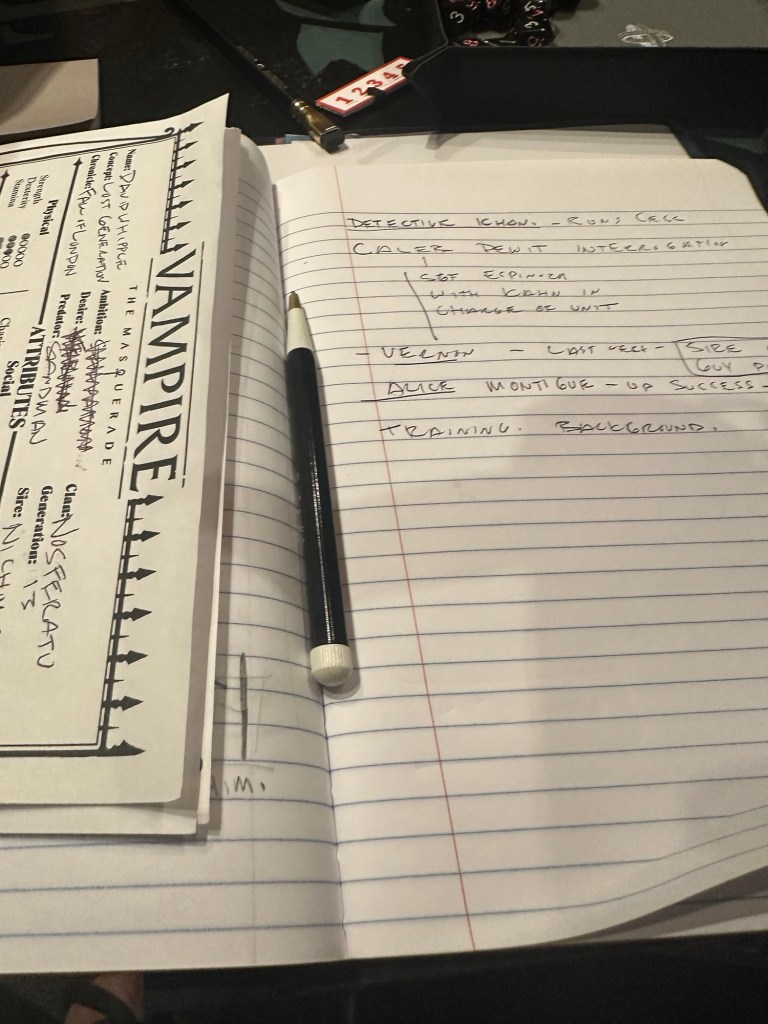 1 2 3 4 5
VAMPIRE
THE MASQUERADE
Name: DAVID WHIPPLE
Concept: LOST GENERATION
Chronicle: FALL OF LONDON
Ambition:
Desire:
Predator: SANDMAN
Clan: NOSFERATU
Generation: 13
Sire:
ATTRIBUTES
Physical
Social
Strength
Dexterity
Stamina
AIM.
DETECTIVE KHON. - RUNS CELL
CALEB DEWIT INTERROGATION
SGT ESPINOZA
WITH KAHN IN
CHARGE OF UNIT
- VERNON LAST CELL - SIRE
GUY P
ALICE MONTIGUE - UP SUCCESS -
TRAINING. BACKGROUND.